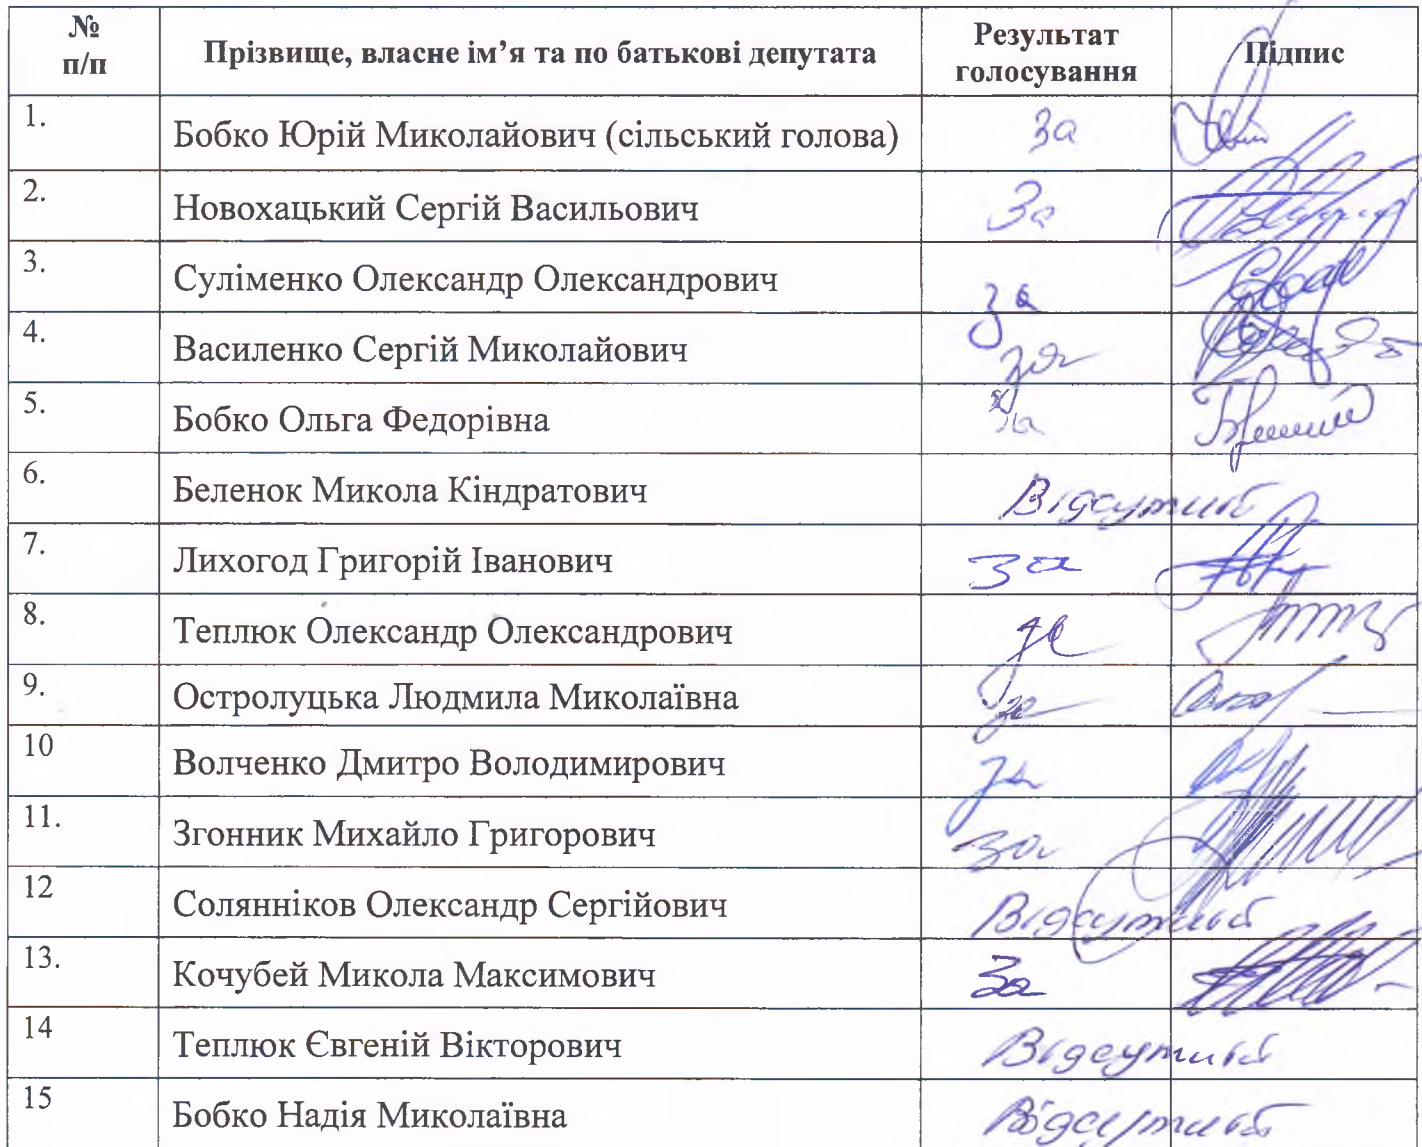 № п/п Прізвище, власне ім’я та по батькові депутата Результат голосування Підпис
1. Бобко Юрій Миколайович (сільський голова) За
2. Новохацький Сергій Васильович За
3. Суліменко Олександр Олександрович за
4. Василенко Сергій Миколайович за
5. Бобко Ольга Федорівна за
6. Беленок Микола Кіндратович Відсутній
7. Лихогод Григорій Іванович За
8. Теплюк Олександр Олександрович за
9. Остролуцька Людмила Миколаївна за
10 Волченко Дмитро Володимирович за
11. Згонник Михайло Григорович за
12 Солянніков Олександр Сергійович Відсутній
13. Кочубей Микола Максимович За
14 Теплюк Євгеній Вікторович Відсутній
15 Бобко Надія Миколаївна Відсутній